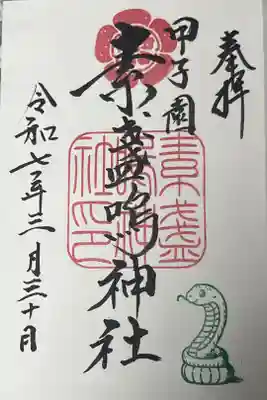 奉拝
甲子園
素盞嗚神社
令和七年三月三十日
素盞
嗚神
社印